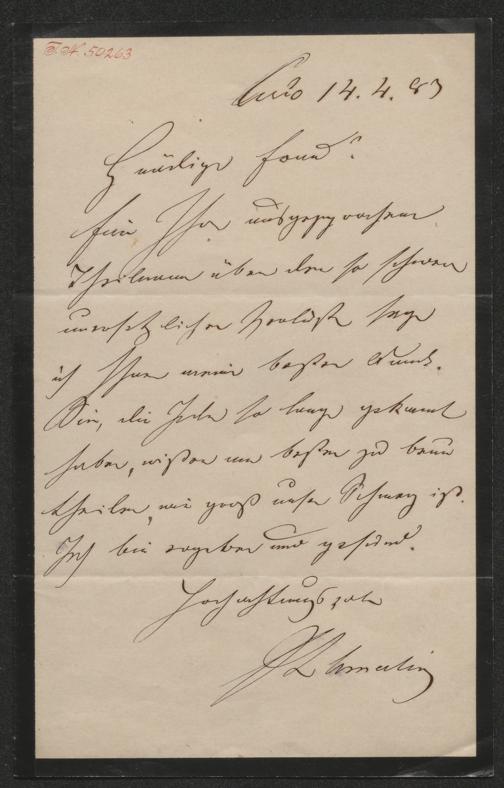 I. N. 50263
14.4.83
Gnädige Frau!
Für Ihre ausgesprochene
Theilnahme über den so schweren
unersetzlichen Verlust sage
ich Ihnen meinen besten Dank.
Sie, die so lange gekannt
haben, wissen am besten zu beur
theilen, wie groß unser Schmerz ist.
Ich bin ergebenst
Hochachtungsvoll